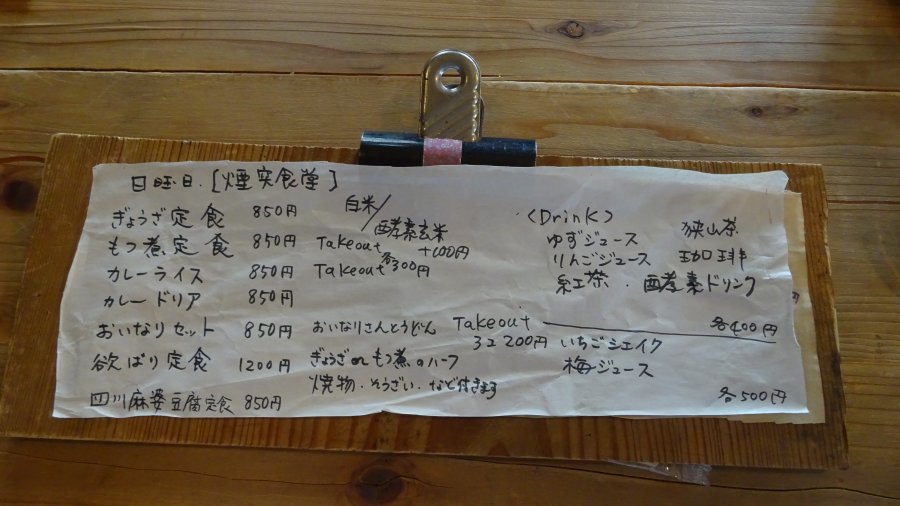 日曜日.［煙突食堂］
ぎょうざ定食 850円 白米/酵素玄米 +100円
もつ煮定食 850円 Takeout
カレーライス 850円 Takeout 各300円
カレードリア 850円
おいなりセット 850円 おいなりさんとうどん Takeout 3コ200円
欲ばり定食 1200円 ぎょうざorもつ煮のハーフ
焼物・そうざい・など付きます
四川麻婆豆腐定食 850円
〈Drink〉
ゆずジュース 狭山茶
りんごジュース 珈琲
紅茶 ・酵素ドリンク
各400円
いちごシェイク
梅ジュース
各500円